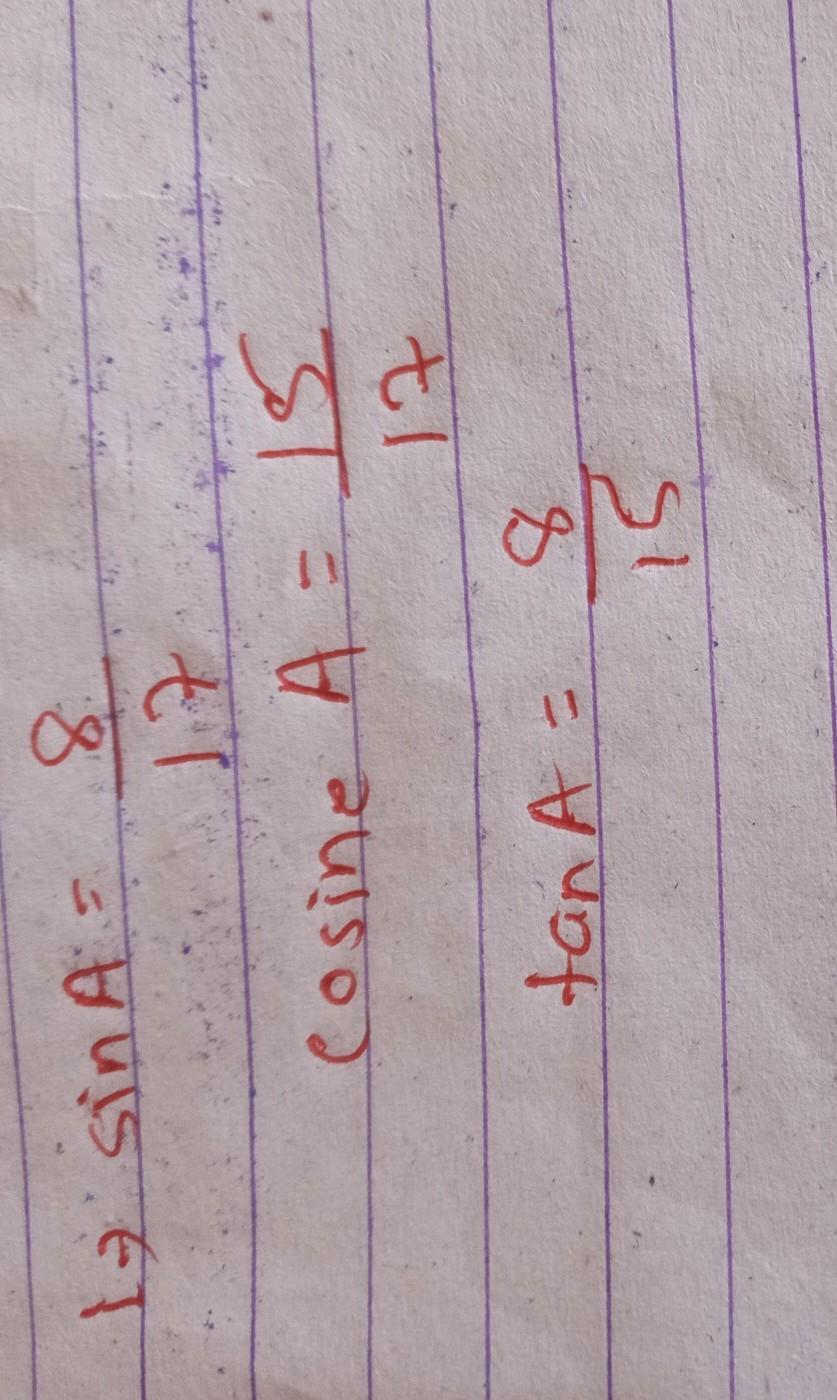 1) sin A = 8/17
cosine A = 15/17
tan A = 8/15